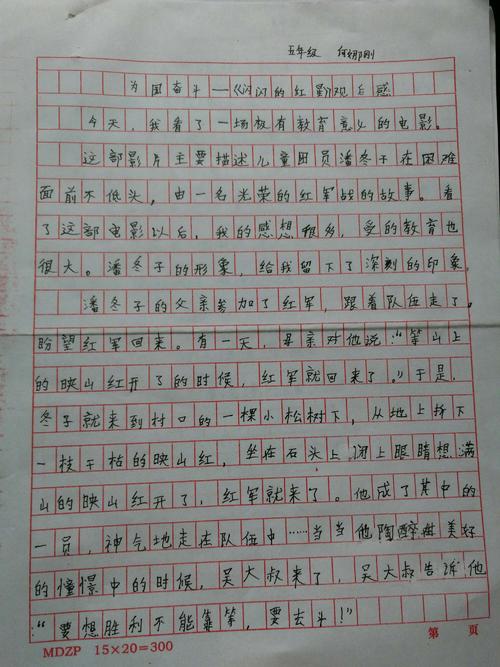 五年级 何娜刚
为国奋斗——《闪闪的红影》观后感
今天，我看了一场极有教育意义的电影。
这部影片主要描述儿童团员潘冬子在困难
面前不低头，由一名光荣的红军战的故事。看
了这部电影以后，我的感想很多，受的教育也
很大。潘冬子的形象，给我留下了深刻的印象。
潘冬子的父亲参加了红军，跟着队伍走了。
盼望红军回来。有一天，母亲对他说："等山上
的映山红开了的时候，红军就回来了。"于是，
冬子就来到村口的一棵小松树下，从地上拆下
一枝干枯的映山红，坐在石头上，闭上眼睛想满
山的映山红开了，红军就来了。他成了其中的
一员，神气地走在队伍中……当当他陶醉在美好
的憧憬中的时候，吴大叔来了，吴大叔告诉他
"要想胜利不能靠等，要去斗！"
MDZP 15×20=300 第 页